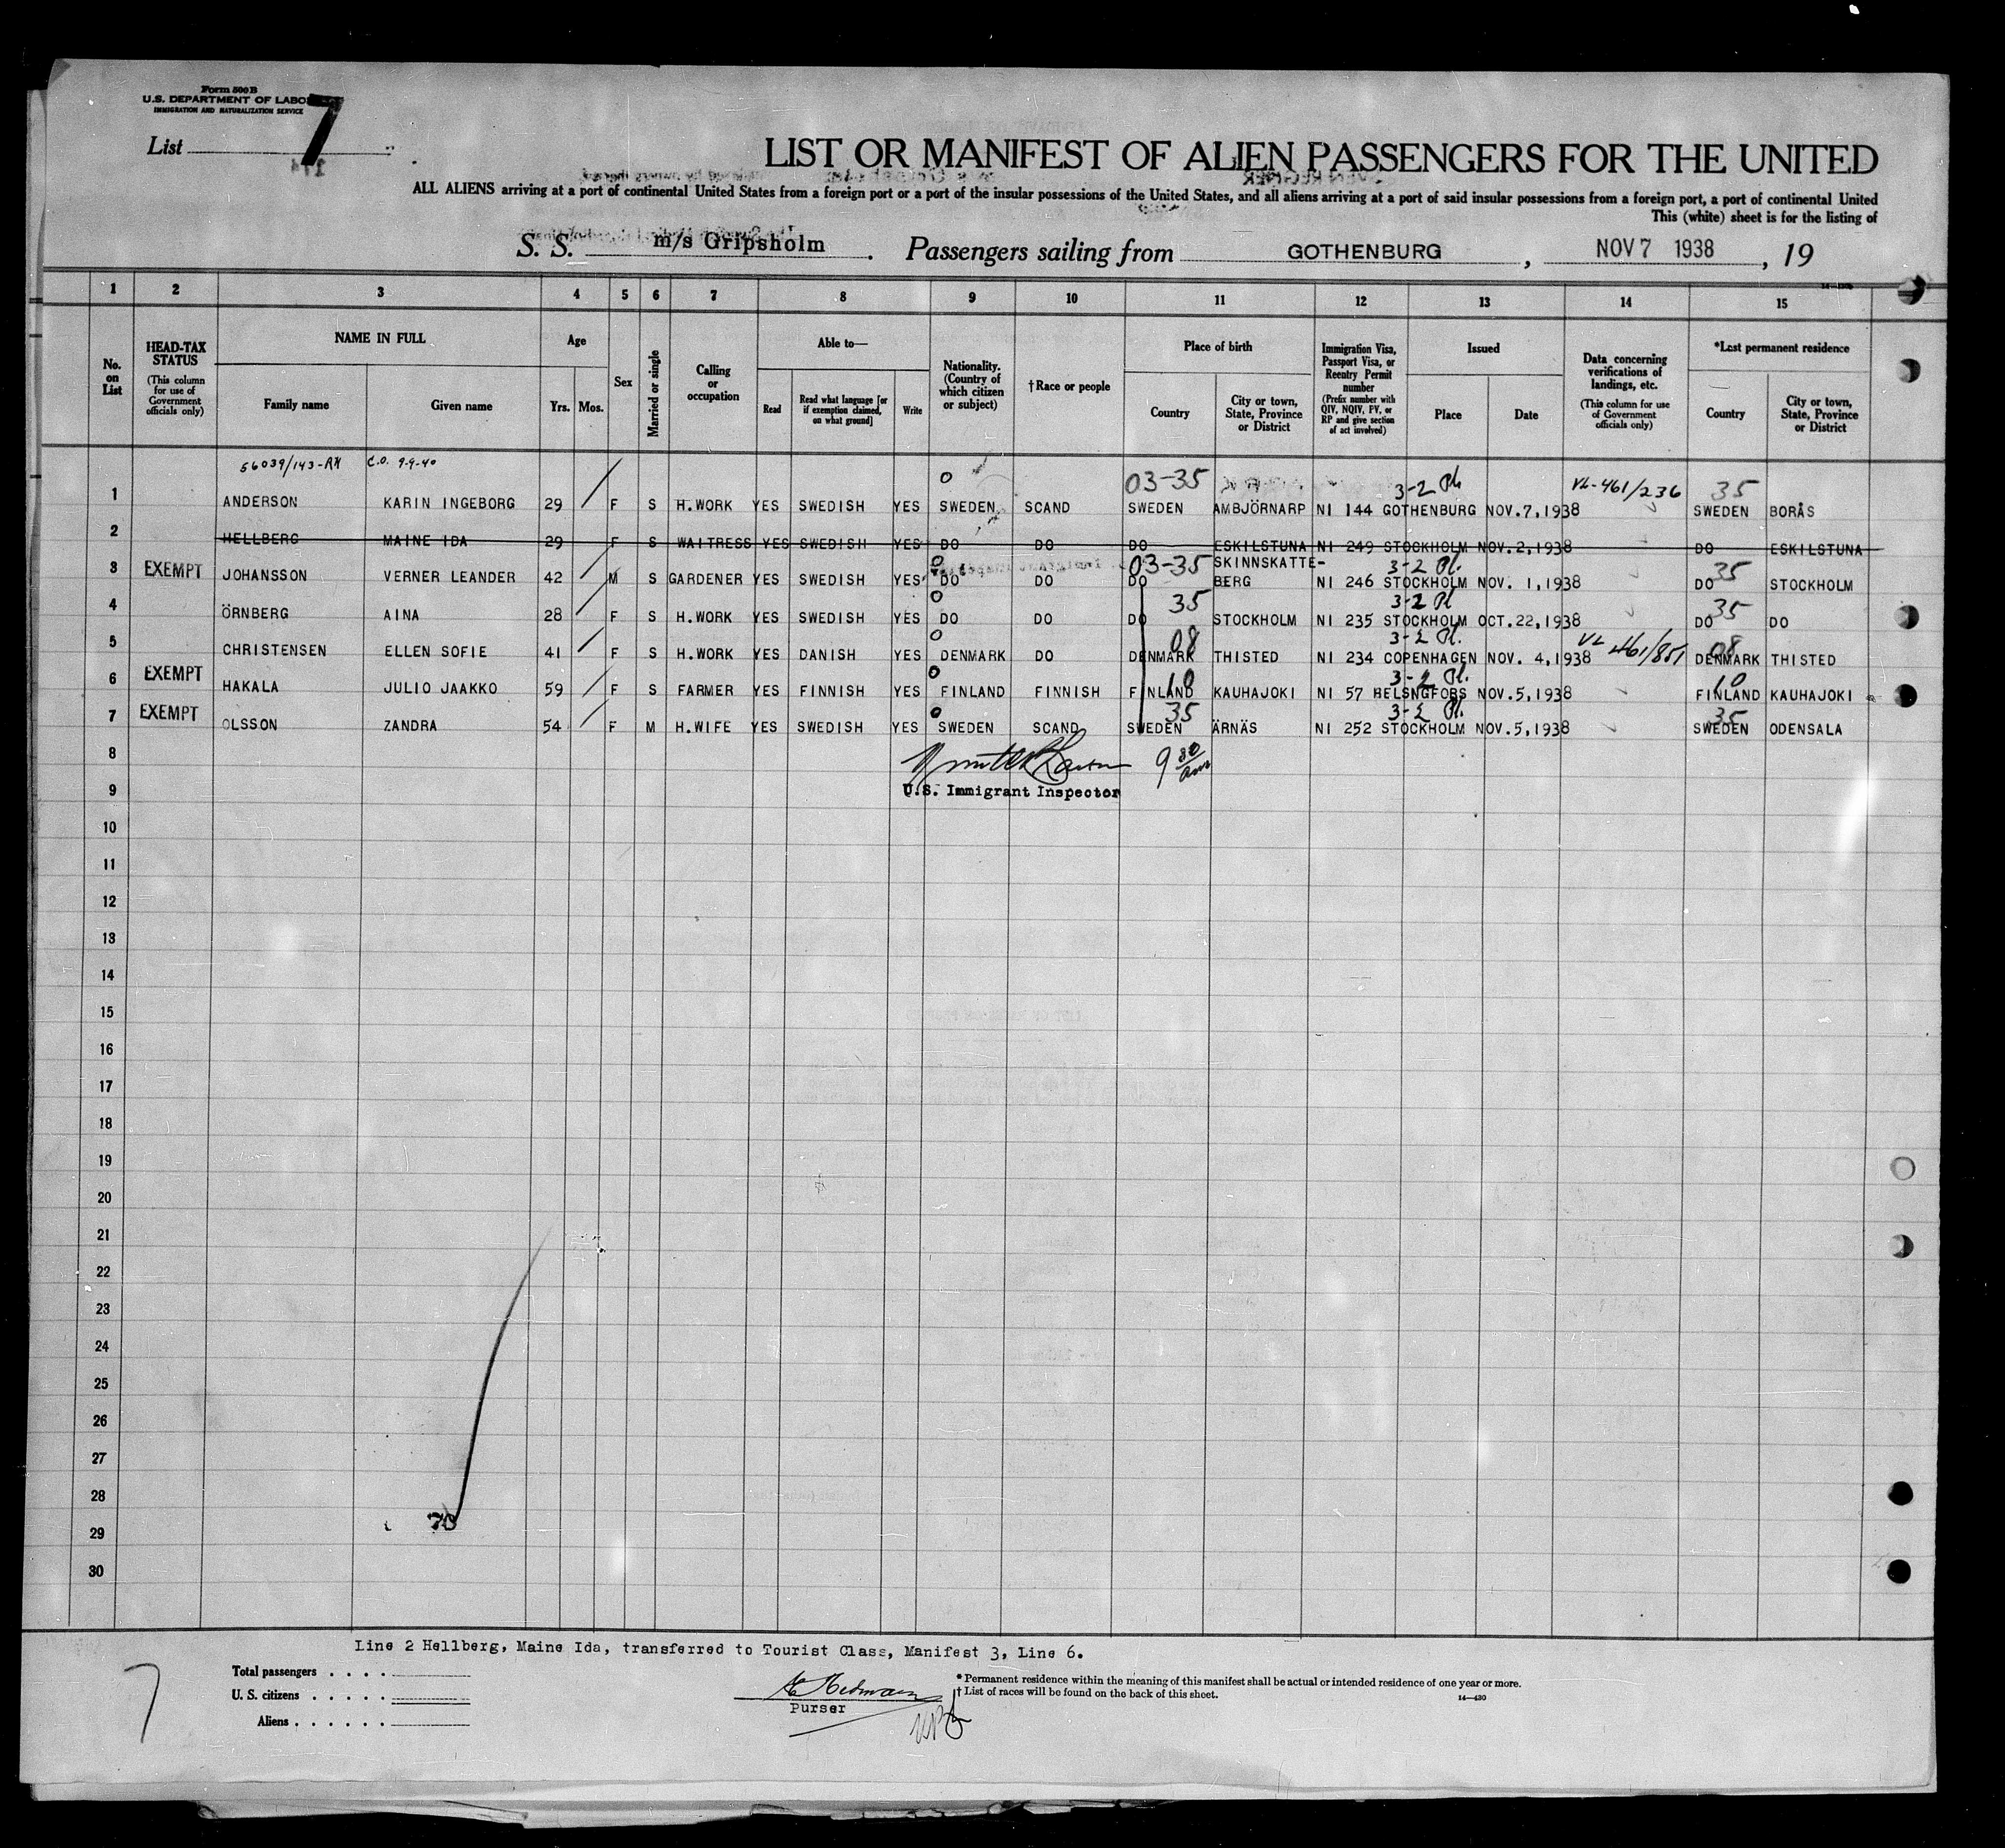 Form 500 B
U.S. DEPARTMENT OF LABO
IMMIGRATION AND NATURALIZATION SERVICE
List 7
LIST OR MANIFEST OF ALIEN PASSENGERS FOR THE UNITED
ALL ALIENS arriving at a port of continental United States from a foreign port or a port of the insular possessions of the United States, and all aliens arriving at a port of said insular possessions from a foreign port, a port of continental United
This (white) sheet is for the listing of
S. S. m/s Gripsholm . Passengers sailing from GOTHENBURG , NOV 7 1938 , 19
1 2 3 4 5 6 7 8 9 10 11 12 13 14 15
No. on List
HEAD-TAX STATUS (This column for use of Government officials only)
NAME IN FULL
Family name Given name
Age
Yrs. Mos.
Sex
Married or single
Calling or occupation
Able to—
Read
Read what language [or if exemption claimed, on what ground]
Write
Nationality. (Country of which citizen or subject)
†Race or people
Place of birth
Country
City or town, State, Province or District
Immigration Visa, Passport Visa, or Reentry Permit number (Prefix number with QIV, NQIV, PV, or RP and give section of act involved)
Issued
Place Date
Data concerning verifications of landings, etc. (This column for use of Government officials only)
*Last permanent residence
Country
City or town, State, Province or District
56039/143-RH C.O. 9-9-40
03-35 3-2 Pl. VL-461/236 35
1 ANDERSON KARIN INGEBORG 29 F S H.WORK YES SWEDISH YES SWEDEN SCAND SWEDEN AMBJÖRNARP NI 144 GOTHENBURG NOV.7,1938 SWEDEN BORÅS
2 HELLBERG MAINE IDA 29 F S WAITRESS YES SWEDISH YES DO DO DO ESKILSTUNA NI 249 STOCKHOLM NOV.2,1938 DO ESKILSTUNA
03-35 SKINNSKATTE- 3-2 Pl. 35
3 EXEMPT JOHANSSON VERNER LEANDER 42 M S GARDENER YES SWEDISH YES DO DO DO BERG NI 246 STOCKHOLM NOV. 1,1938 DO STOCKHOLM
35 3-2 Pl 35
4 ÖRNBERG AINA 28 F S H.WORK YES SWEDISH YES DO DO DO STOCKHOLM NI 235 STOCKHOLM OCT.22,1938 DO DO
08 3-2 Pl. VL 461/851 08
5 CHRISTENSEN ELLEN SOFIE 41 F S H.WORK YES DANISH YES DENMARK DO DENMARK THISTED NI 234 COPENHAGEN NOV. 4,1938 DENMARK THISTED
10 3-2 Pl. 10
6 EXEMPT HAKALA JULIO JAAKKO 59 F S FARMER YES FINNISH YES FINLAND FINNISH FINLAND KAUHAJOKI NI 57 HELSNGFORS NOV.5,1938 FINLAND KAUHAJOKI
35 3-2 Pl. 35
7 EXEMPT OLSSON ZANDRA 54 F M H.WIFE YES SWEDISH YES SWEDEN SCAND SWEDEN ÄRNÄS NI 252 STOCKHOLM NOV.5,1938 SWEDEN ODENSALA
8 9 30 am
9 U.S. Immigrant Inspector
10
11
12
13
14
15
16
17
18
19
20
21
22
23
24
25
26
27
28
70
29
30
Line 2 Hellberg, Maine Ida, transferred to Tourist Class, Manifest 3, Line 6.
7
Total passengers . . . .
U. S. citizens . . . . .
Aliens . . . . . .
Hedman
Purser
* Permanent residence within the meaning of this manifest shall be actual or intended residence of one year or more.
† List of races will be found on the back of this sheet.
14—430